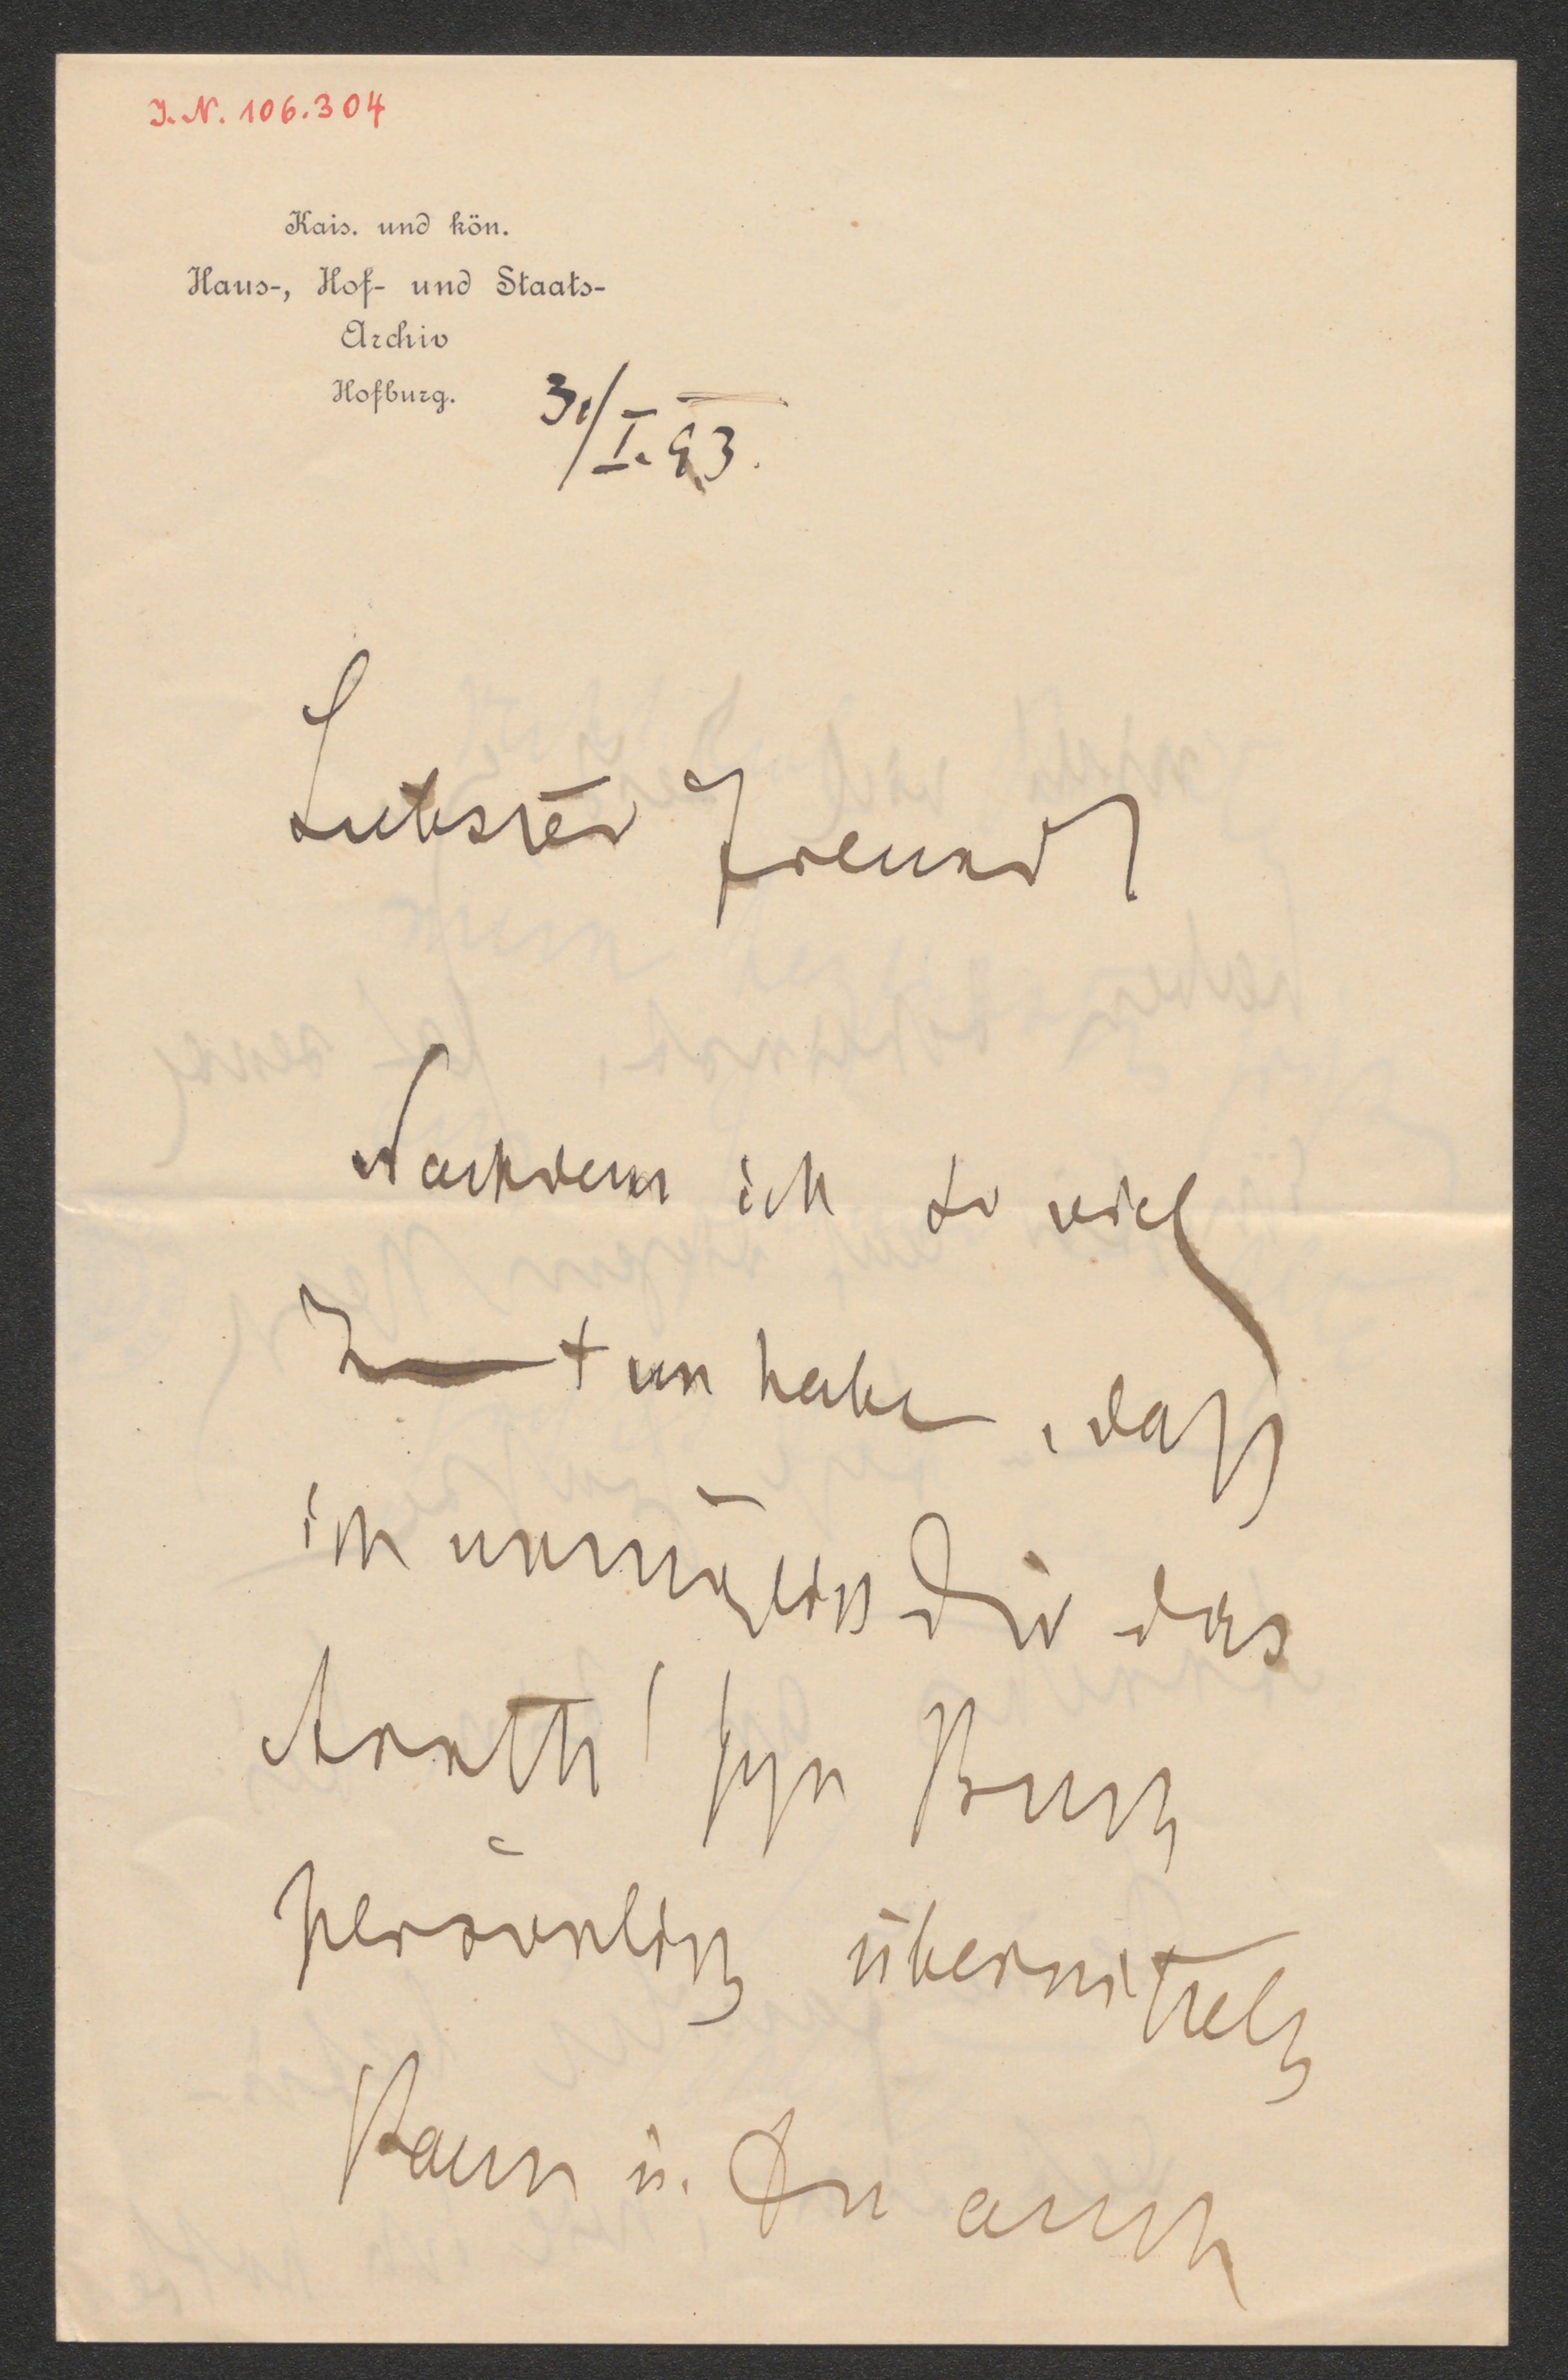 I. N. 106.304
Kais. und kön.
Haus-, Hof- und Staats-
Archiv
Hofburg.
31/I. 93.
Liebster Freund
Nachdem ich so viel
zu tun habe, daß
ich unmöglich Dir das
Arneth'sche Buch
persönlich übermitteln
kann u. Du auch